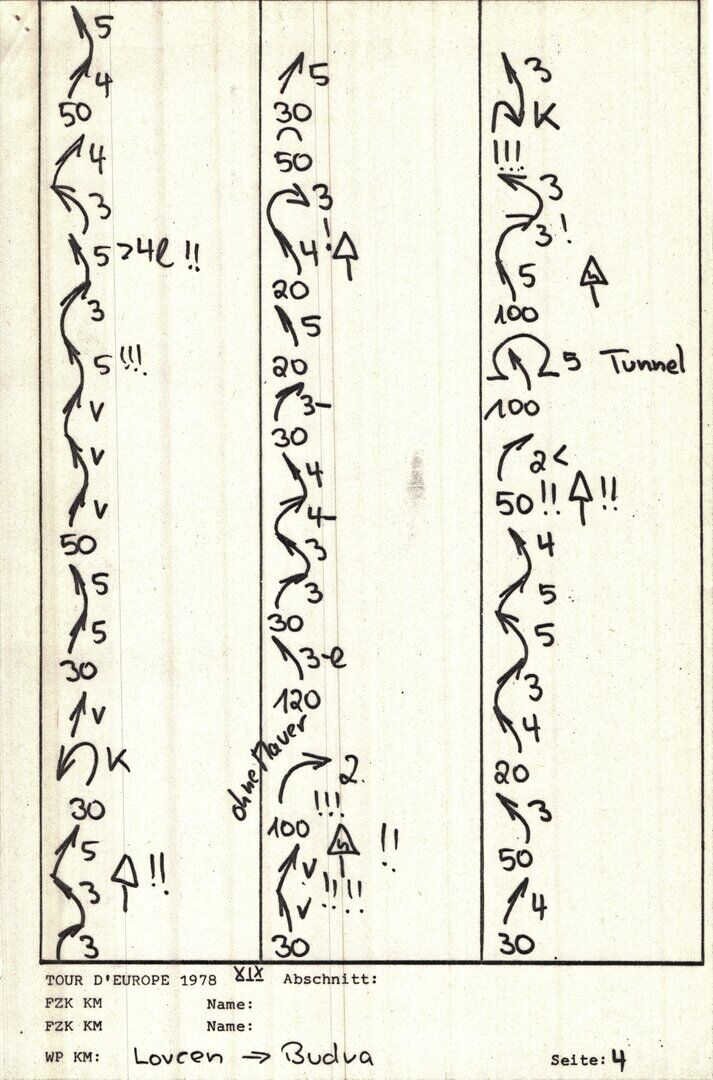 5
4
50
4
3
5>4e !!
3
5 !!!
v
v
v
50
5
5
30
v
K
30
5
!!
3
3
5
30
50
3
4 !
20
5
20
3-
30
4
4-
3
3
30
3-e
120
ohne Mauer
2.
!!!
100
!!
v
v !!!!
30
3
K
!!!
3
3!
5
100
5 Tunnel
100
2<
50 !! !!
4
5
5
3
4
20
3
50
4
30
TOUR D'EUROPE 1978 XIX Abschnitt:
FZK KM Name:
FZK KM Name:
WP KM: Lovcen → Budva Seite: 4